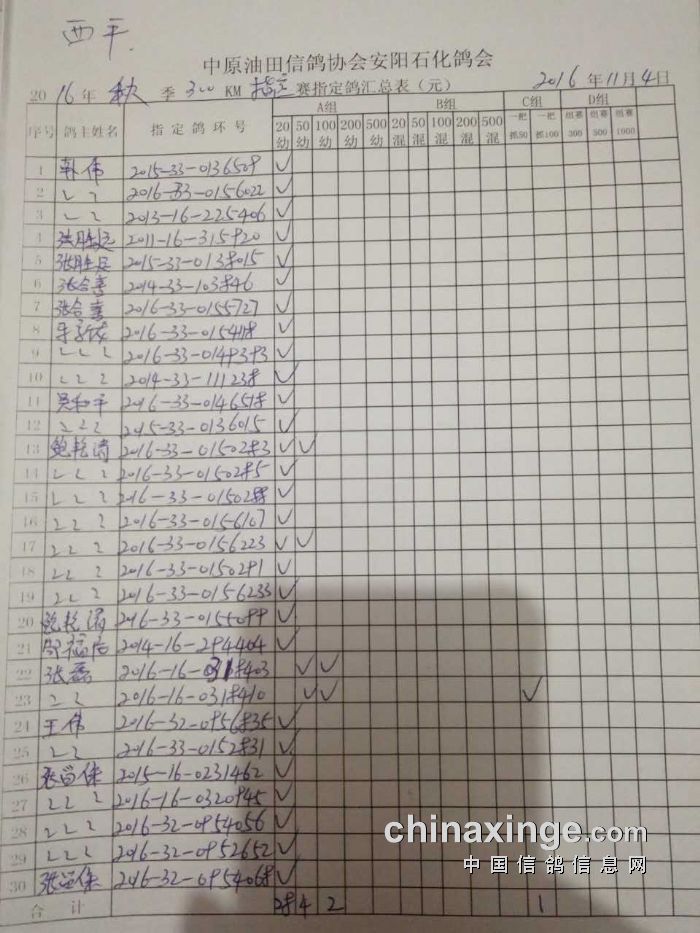 西平
中原油田信鸽协会安阳石化鸽会
2016年 秋 季 300 KM 指定 赛指定鸽汇总表（元） 2016年11月4日
序号 鸽主姓名 指定鸽环号 A组 B组 C组 D组
20幼 50幼 100幼 200幼 500幼 20混 50混 100混 200混 500混 一把抓50 一把抓100 组赛300 组赛500 组赛1000
1 韩伟 2015-33-0136509 ✓
2 〃 2016-33-0156022 ✓
3 〃 2013-16-225406 ✓
4 2011-16-315920 ✓
5 2015-33-0138015 ✓
6 张合喜 2014-33-103846 ✓
7 张合喜 2016-33-0155727 ✓
8 2016-33-0154118 ✓
9 〃 ✓
10 〃 2014-33-111238 ✓
11 吴和平 2016-33-0146518 ✓
12 〃 2015-33-0136015 ✓
13 鲍乾涛 2016-33-0150283 ✓ ✓
14 〃 2016-33-0150285 ✓
15 〃 2016-33-0150288 ✓
16 〃 2016-33-0156107 ✓
17 〃 2016-33-0156223 ✓ ✓
18 〃 2016-33-0150291 ✓
19 〃 2016-33-0156233 ✓
20 鲍乾涛 2016-33-0155099 ✓
21 2014-16-294464 ✓
22 张磊 2016-16-0318403 ✓ ✓
23 〃 2016-16-0318410 ✓ ✓ ✓
24 王伟 2016-32-0956835 ✓
25 〃 2016-33-0152831 ✓
26 张留保 2015-16-0231462 ✓
27 〃 2016-16-0320945 ✓
28 〃 2016-32-0954056 ✓
29 〃 2016-32-0952652 ✓
30 张留保 2016-32-0954068 ✓
合计 28 4 2 1
chinaxinge.com
中国信鸽信息网